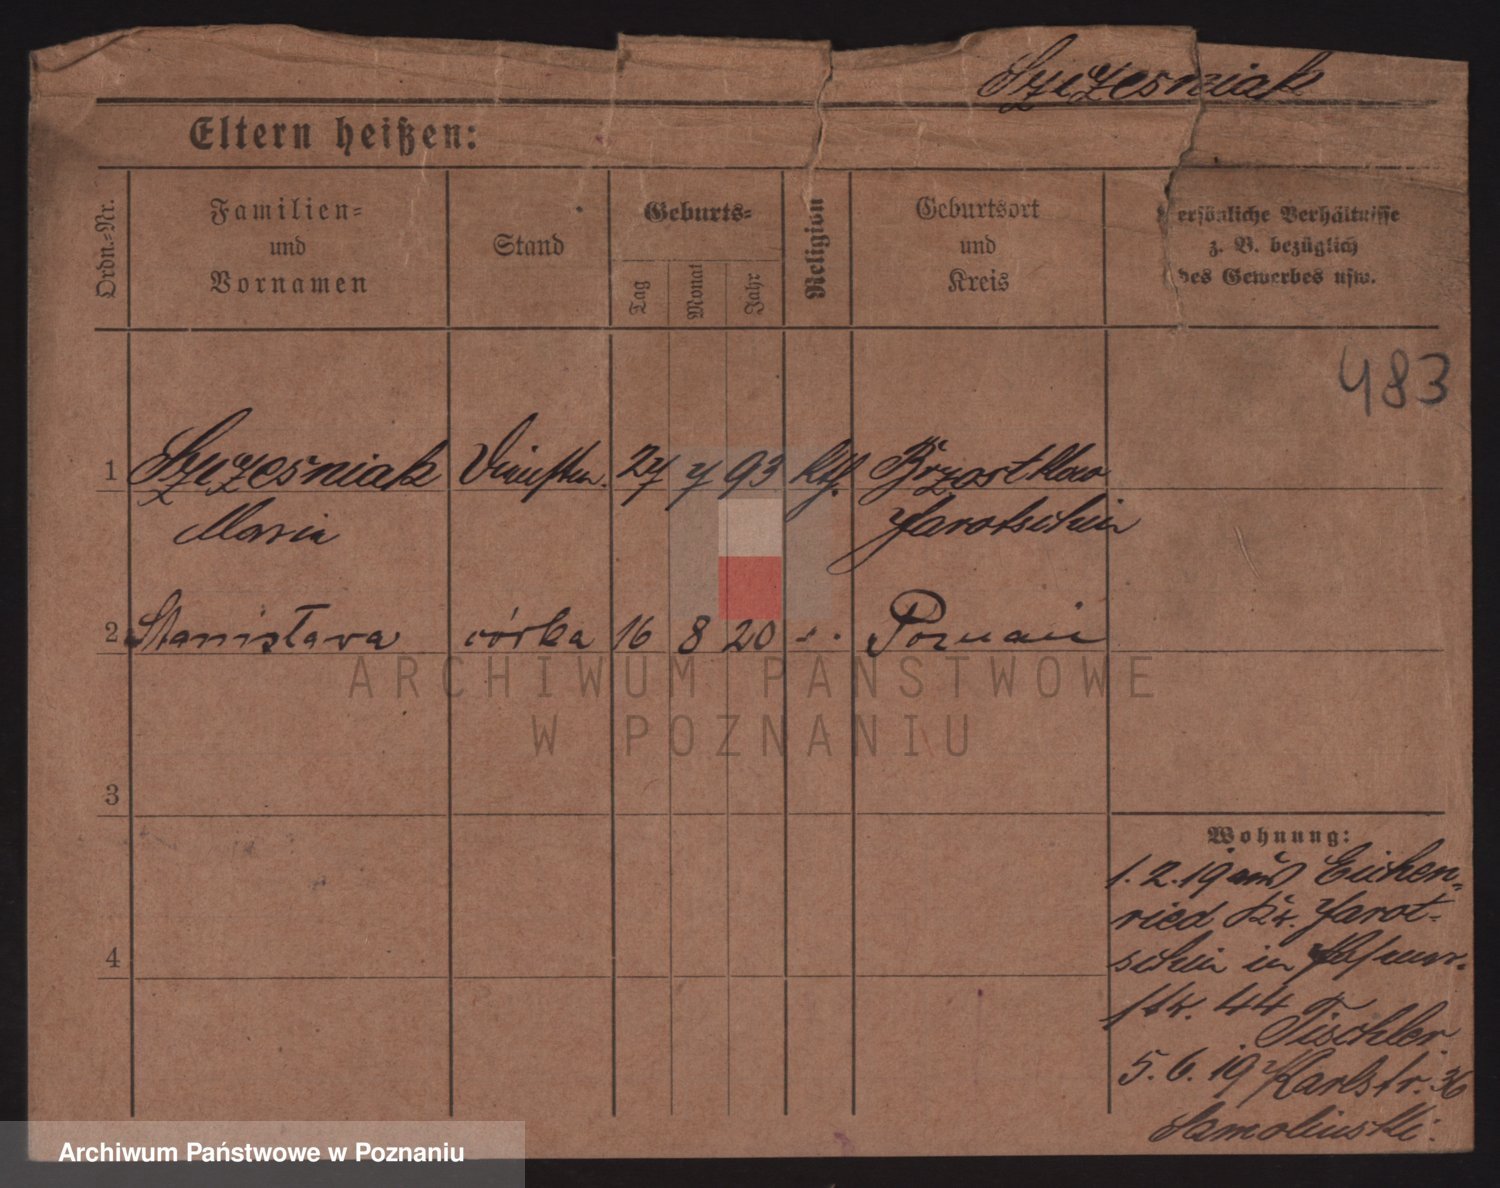 Szczesniak
Eltern heißen:
Ordn.=Nr.
Familien=
und
Vornamen
Stand
Geburts=
Tag
Monat
Jahr
Religion
Geburtsort
und
Kreis
ersönliche Verhältnisse
z. B. bezüglich
des Gewerbes usw.
483
1 Szczesniak 27 7 93 kth. Brzostkow
Maria Jarotschin
2 Stanisława córka 16 8 20 Poznań
3
4
Wohnung:
1.2.19 aus Eichen=
ried Kr. Jarot=
schin in
str. 44 Tischler
5.6.19 Karlstr. 36
Smolinski.
ARCHIWUM PAŃSTWOWE
W POZNANIU
Archiwum Państwowe w Poznaniu